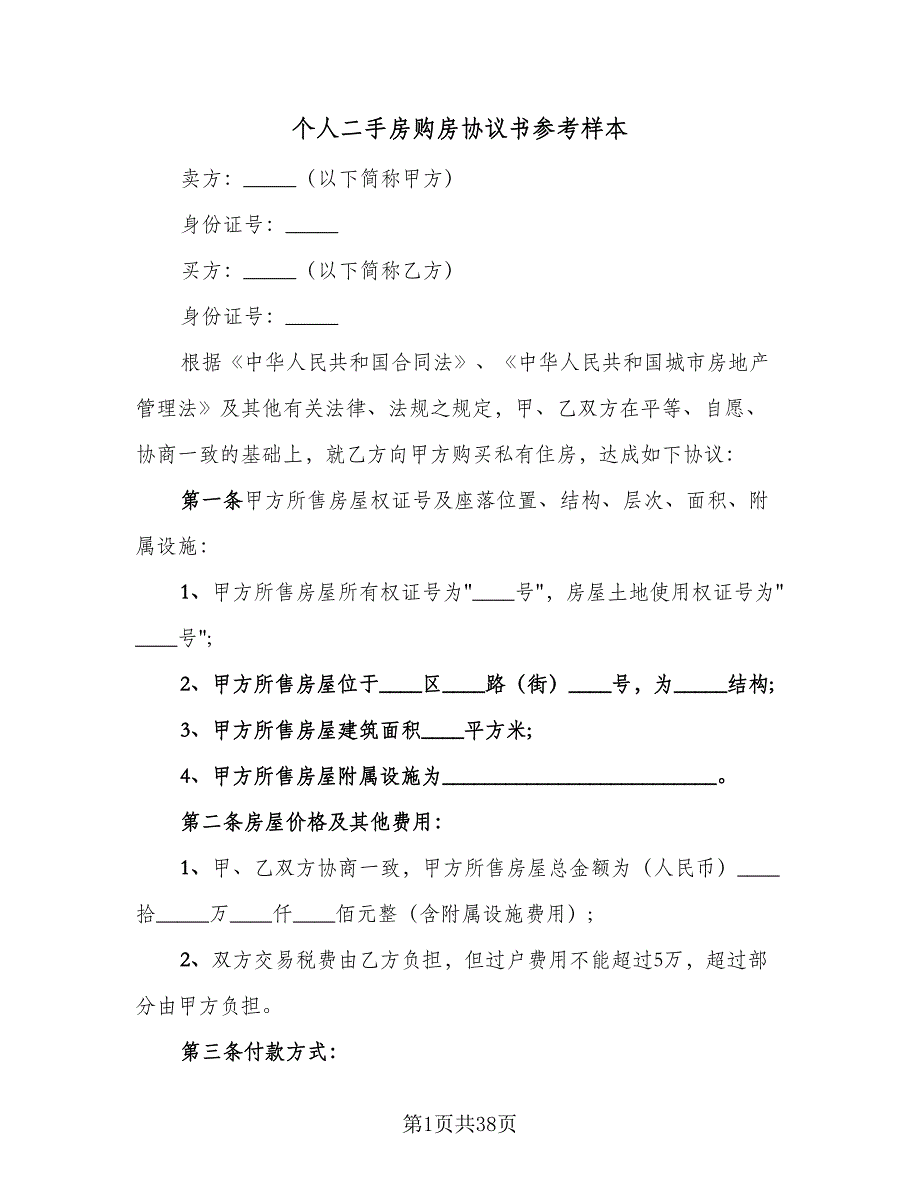 个人二手房购房协议书参考样本
卖方：_____（以下简称甲方）
身份证号：_____
买方：_____（以下简称乙方）
身份证号：_____
根据《中华人民共和国合同法》、《中华人民共和国城市房地产
管理法》及其他有关法律、法规之规定，甲、乙双方在平等、自愿、
协商一致的基础上，就乙方向甲方购买私有住房，达成如下协议：
第一条甲方所售房屋权证号及座落位置、结构、层次、面积、附
属设施：
1、甲方所售房屋所有权证号为"____号"，房屋土地使用权证号为"
____号";
2、甲方所售房屋位于____区____路（街）____号，为_____结构;
3、甲方所售房屋建筑面积____平方米;
4、甲方所售房屋附属设施为__________________________。
第二条房屋价格及其他费用：
1、甲、乙双方协商一致，甲方所售房屋总金额为（人民币）____
拾_____万____仟____佰元整（含附属设施费用）;
2、双方交易税费由乙方负担，但过户费用不能超过5万，超过部
分由甲方负担。
第三条付款方式：
第1页共38页